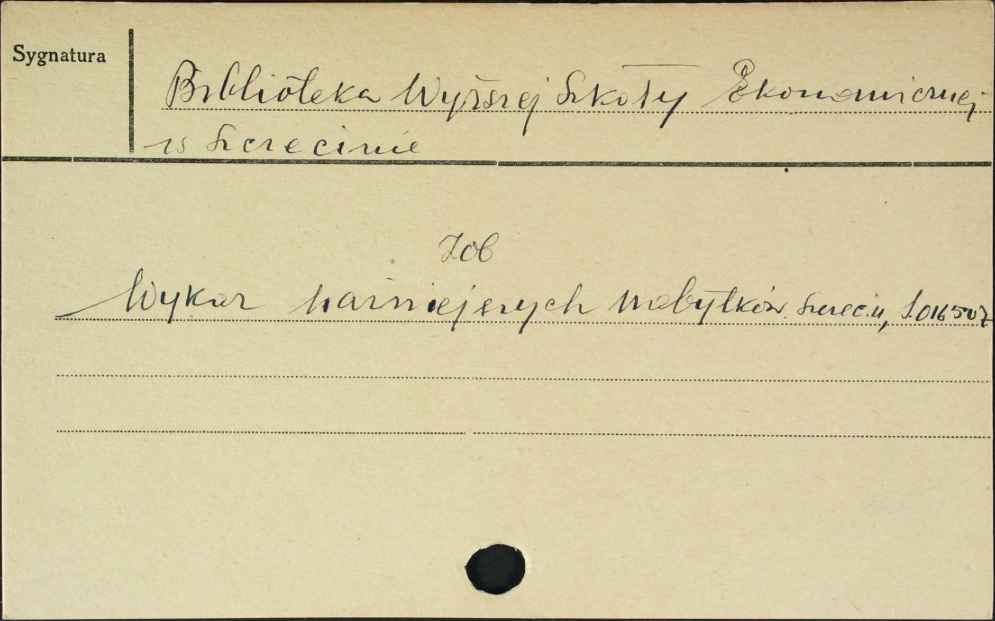 Sygnatura
Biblioteka Wyższej Szkoły Ekonomicznej
w Szczecinie
Zob
Wykaz ważniejszych nabytków. Szczecin, S.016507